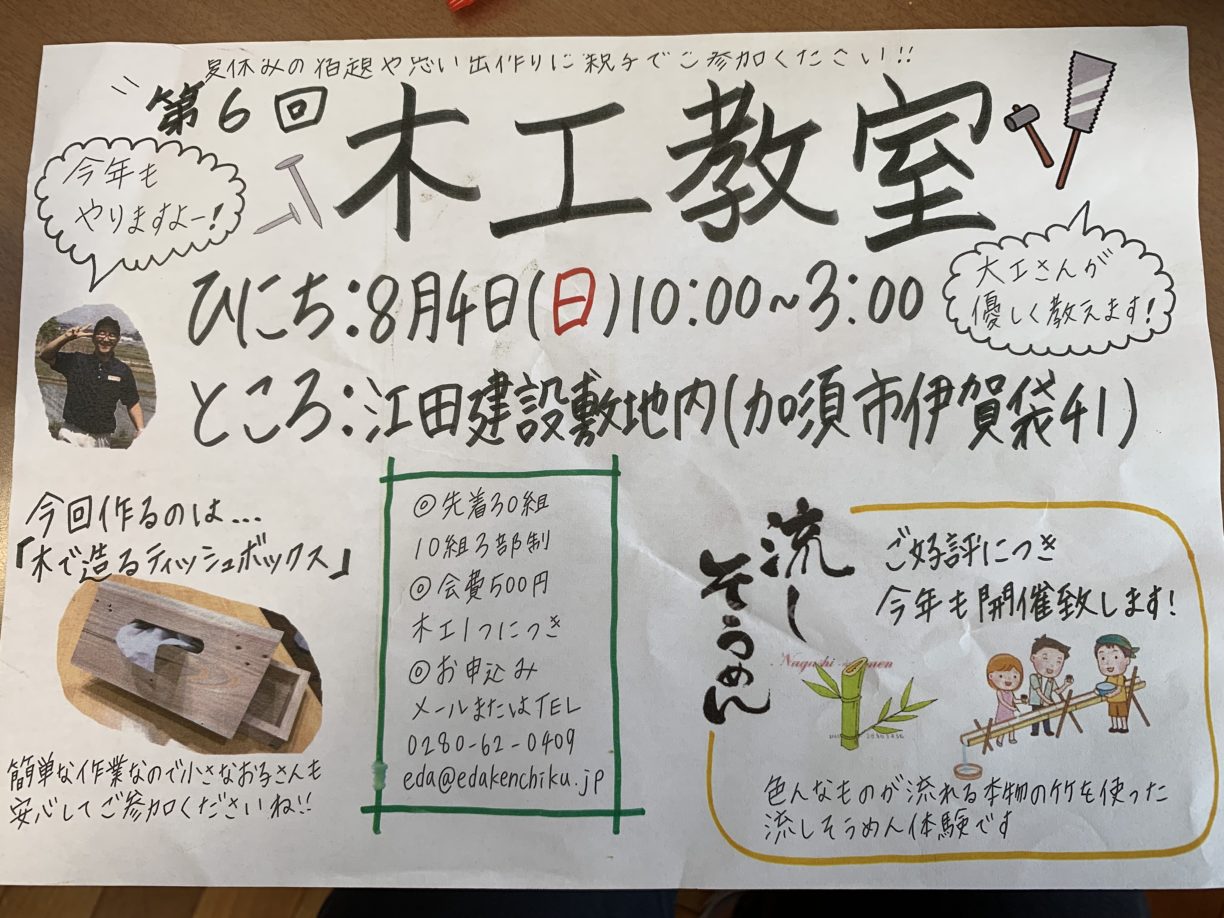 夏休みの宿題や思い出作りに親子でご参加ください!!
第6回
木工教室
今年も
やりますよー!
ひにち:8月4日(日)10:00~3:00
大工さんが
優しく教えます!
ところ:江田建設敷地内(加須市伊賀袋41)
今回作るのは...
「木で造るティッシュボックス」
簡単な作業なので小さなお子さんも
安心してご参加くださいね!!
◎先着30組
10組3部制
◎会費500円
木工1つにつき
◎お申込み
メールまたはTEL
0280-62-0409
eda@edakenchiku.jp
流し
そうめん
Nagashi
ご好評につき
今年も開催致します!
色んなものが流れる本物の竹を使った
流しそうめん体験です